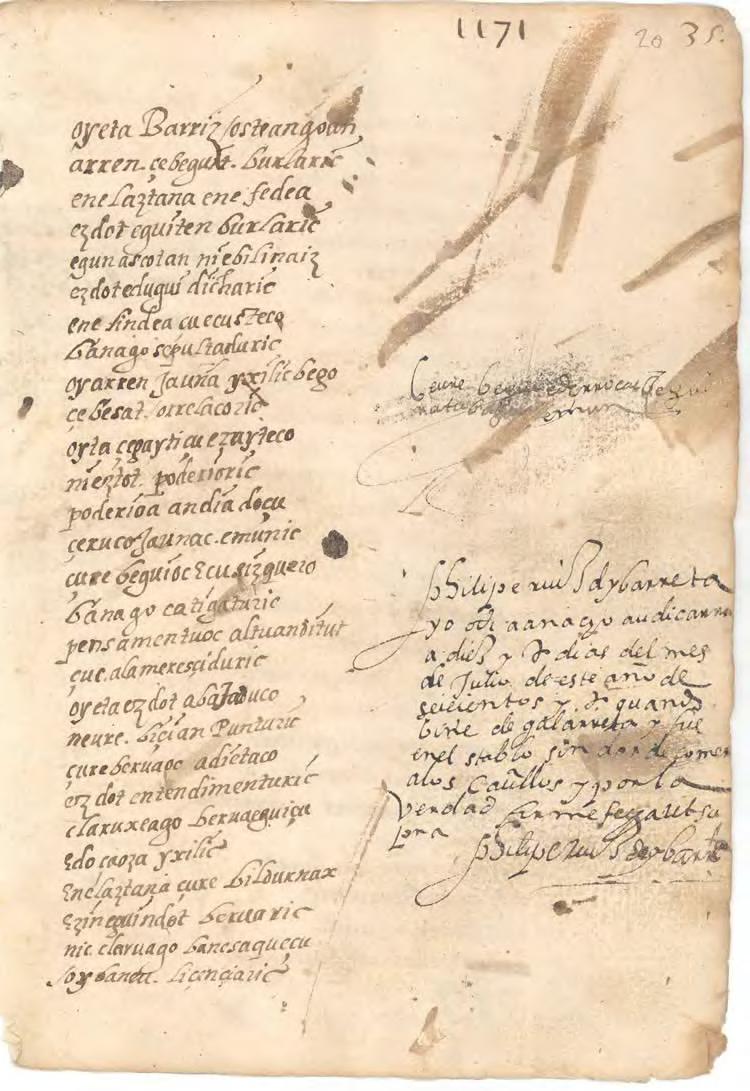 1171
20 35.
oyeta Barriz osteangoan
arren. çebegut. burlaric
ene laztana ene fedea
ez dot eguiten burlaric
egun ascotan niebilinaiz
ez dot edugui dicharic
ene lindea çu ecusteco
banago sepultaduric
oy arren Jauña yxilic bego
çe besat. orrelacoric
oyta çepayti çu ezayteco
nic eztot. poderioric
poderioa andia doçu
çeruco Jaunac. emunic
çure beguioc Eçusizguero
banago catigaturic
pensamentuoc altuanditut
çuc. ala mereçiduric
oyeta ez dot abajaduco
neure. biçian Punturic
çure bervaoc adietaco
ez dot entendimenturic
claruxeago bervaeguiçu
Edo caoza yxilic
Ene laztana çure bildurnax
Ezin eguin dot bervaric
nic claruago banesaqueçu
oy banu. liçençiaric
ceure
emun
philipe ruiz dybarreta
yo
a diez y dias del mes
de Julio de este año de
seiscientos y quando
bine de galarreta y fue
en el stablo sin dar de comer
a los Cauallos y por la
verdad firme
philipe ruiz dybarreta